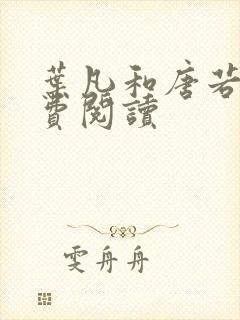 葉凡和唐若
費閱讀
雯舟舟